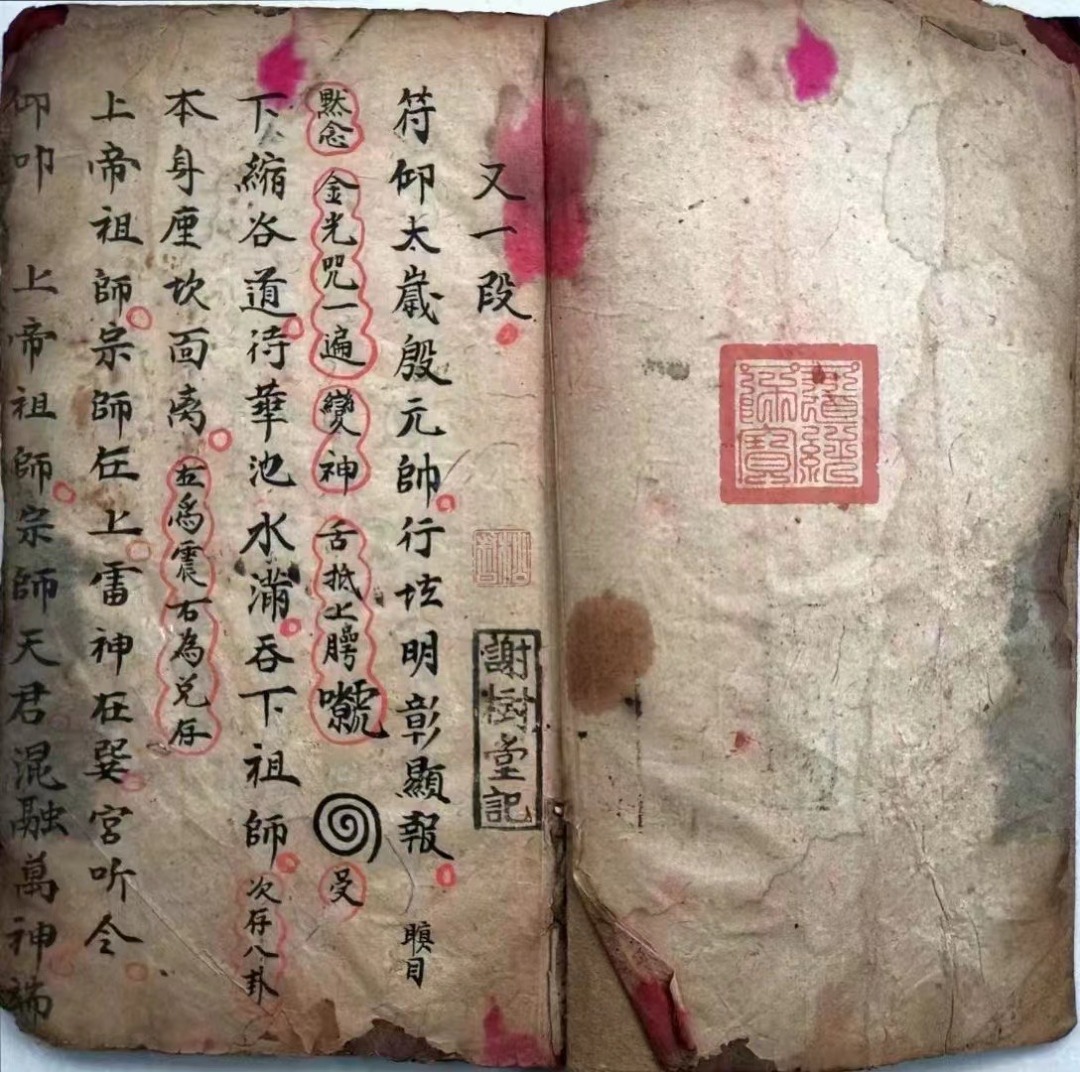 道經師寶
又一段
謝樹堂記
符仰太歲殷元帥行壇明彰顯報 瞋目
默念 金光咒一遍 變神 舌抵上腭 受
下縮谷道待華池水滿吞下祖師 次存八卦
本身座坎面离 左為震右為兌存
上帝祖師宗師在上雷神在巽宮听令
仰叩 上帝祖師宗師天君混融萬神端